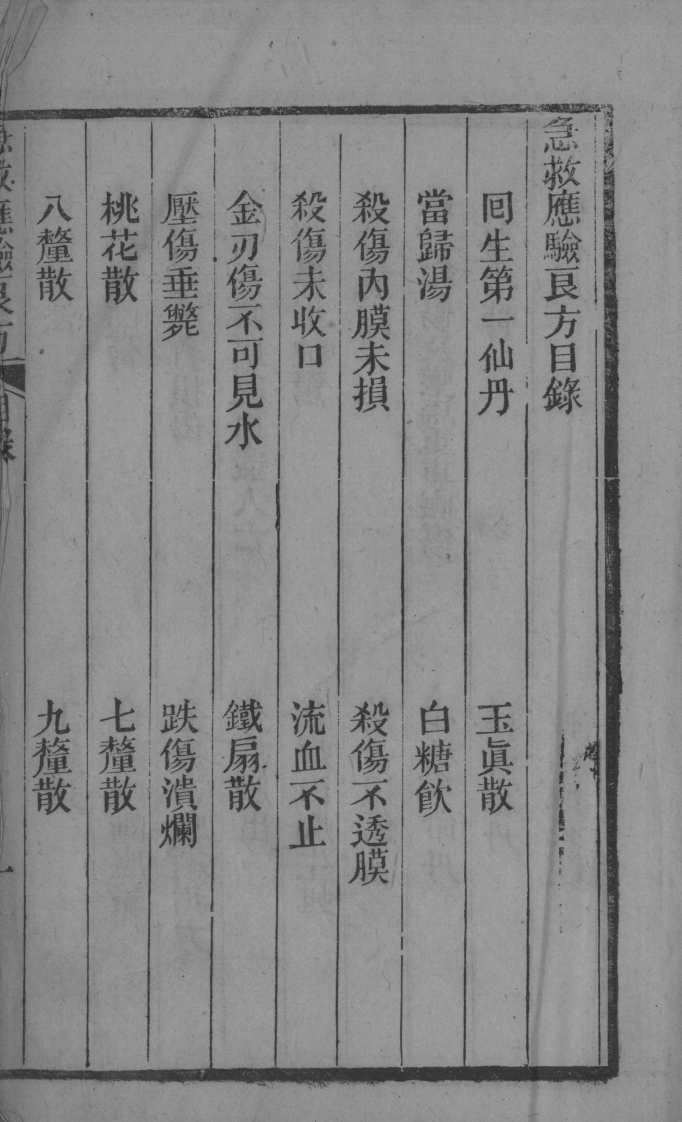 急救應驗良方目錄
囘生第一仙丹　玉眞散
當歸湯　白糖飮
殺傷內膜未損　殺傷不透膜
殺傷未收口　流血不止
金刃傷不可見水　鐵扇散
壓傷垂斃　跌傷潰爛
桃花散　七釐散
八釐散　九釐散
急救應驗良方　目錄　一